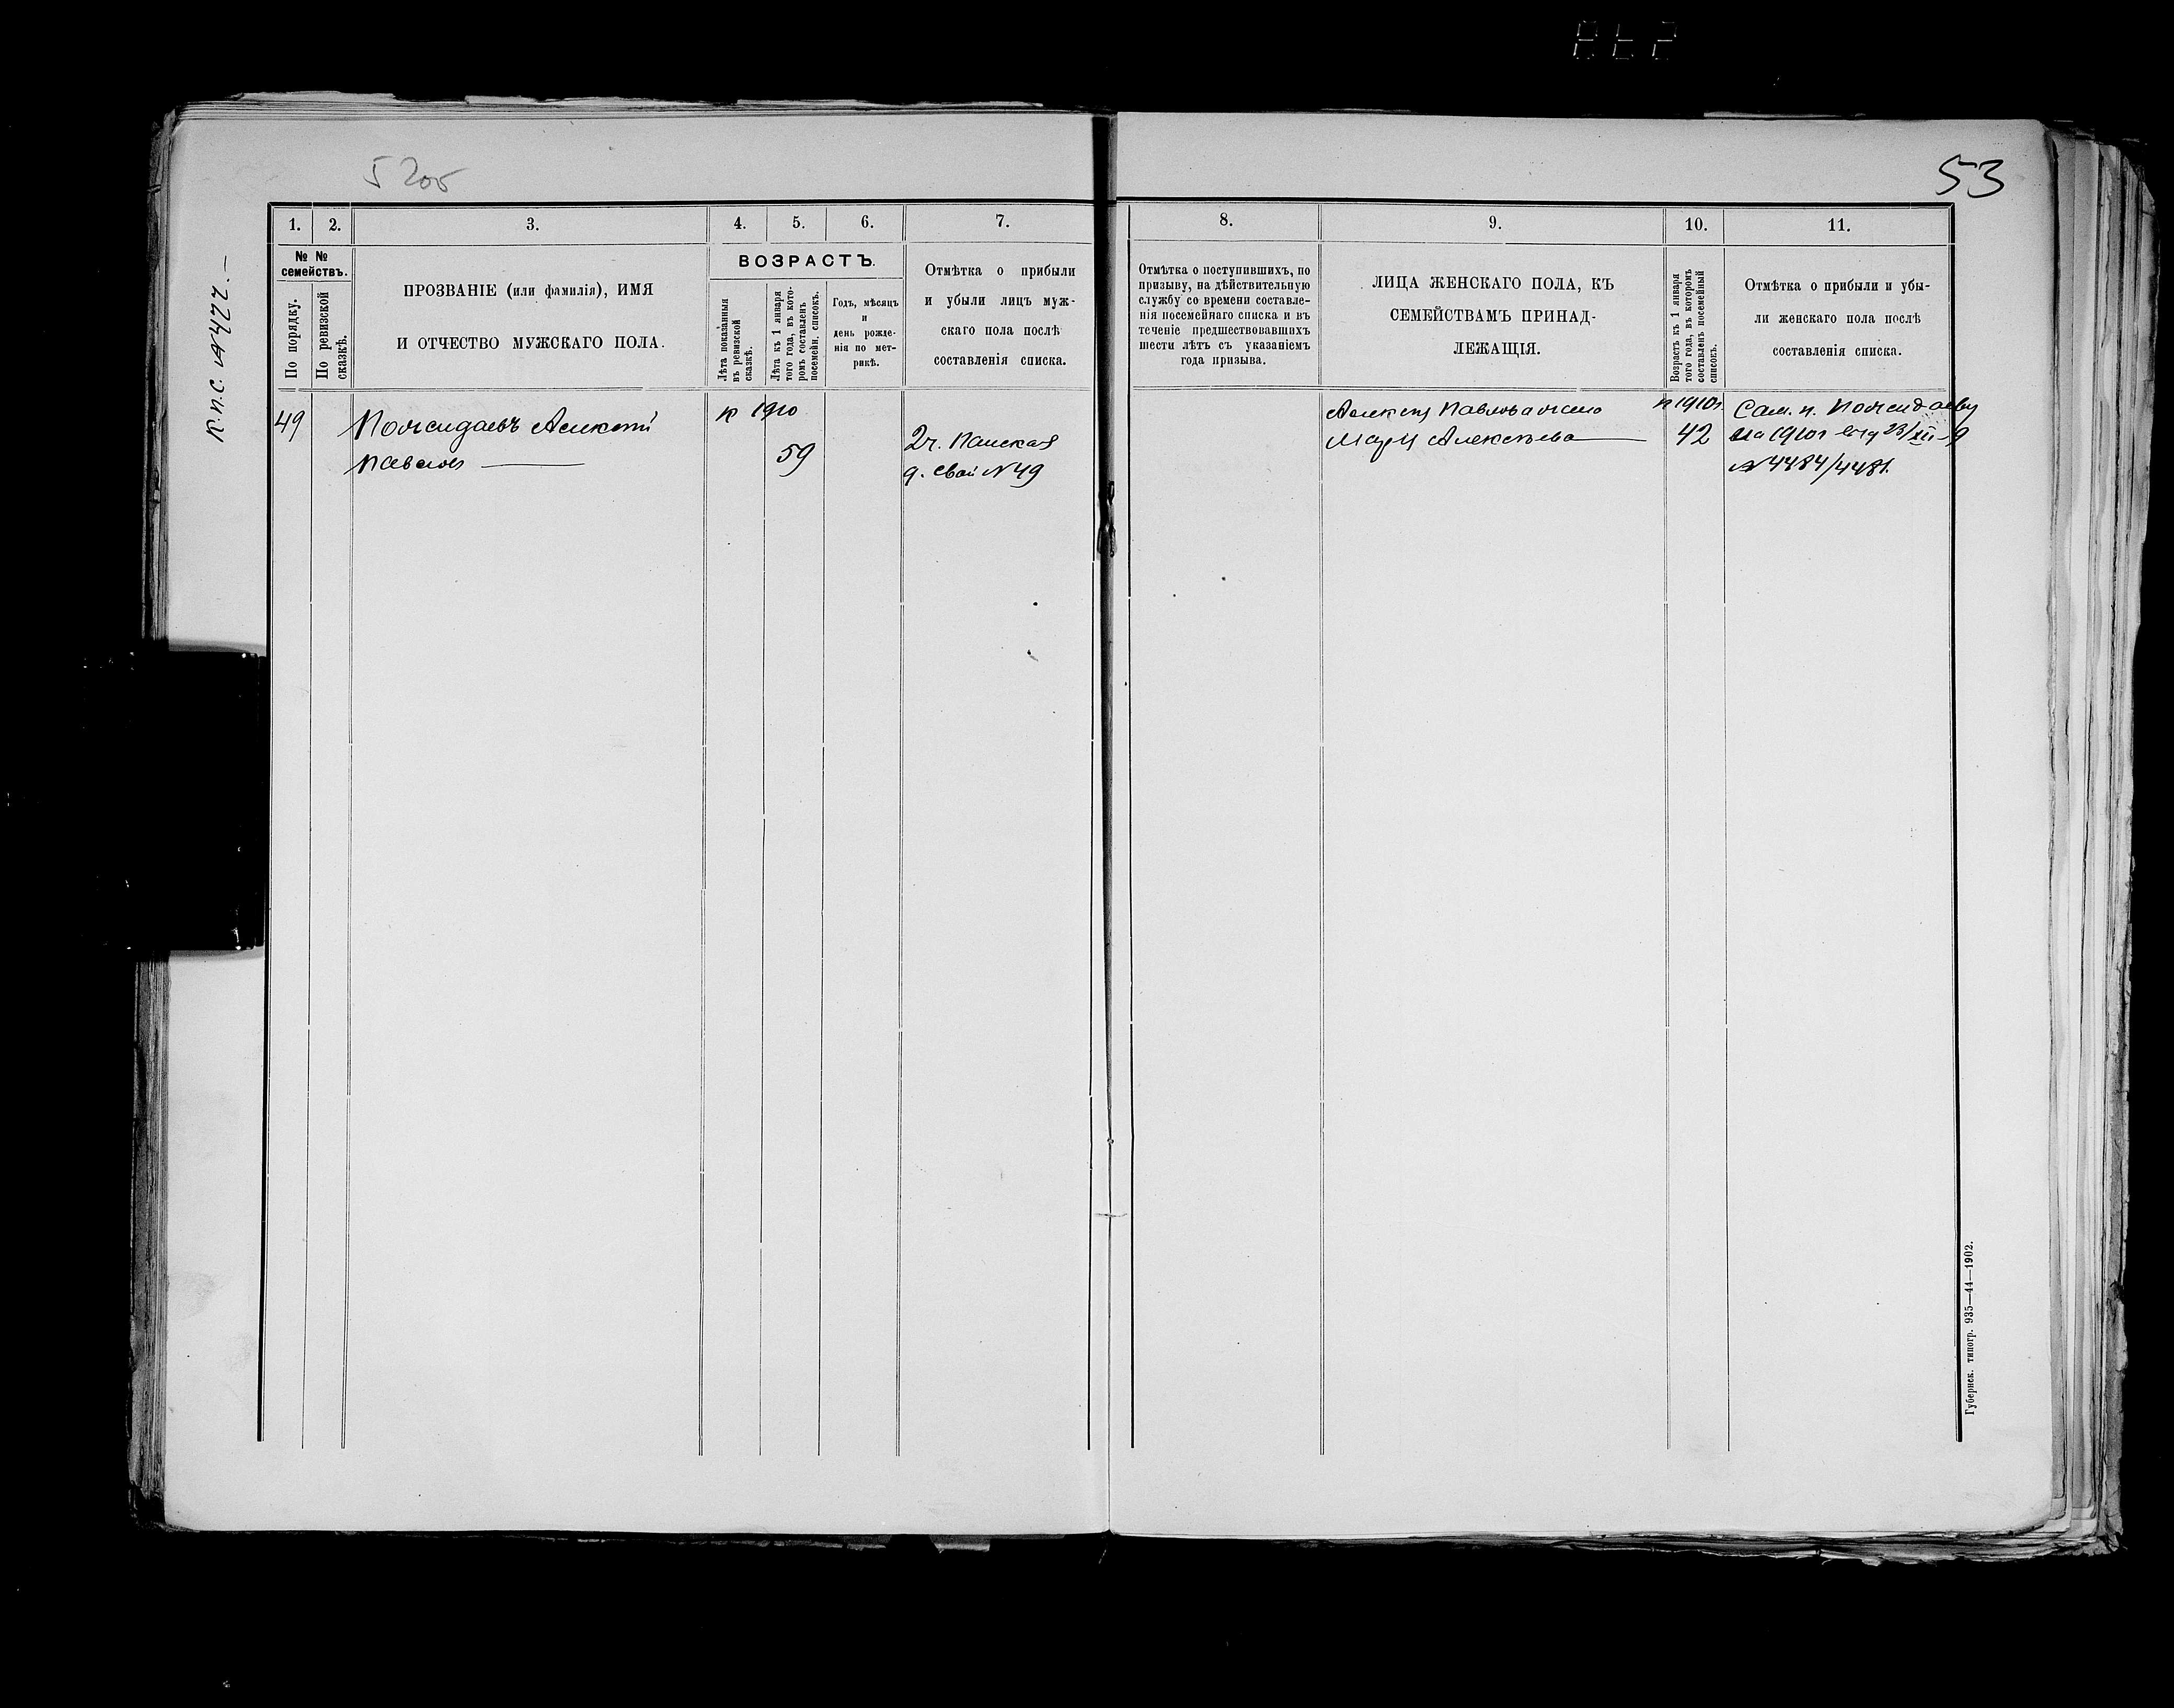 53
К.п.с. №477.—
1. 2. 3. 4. 5. 6. 7. 8. 9. 10. 11.
№ №
семействъ.
По порядку.
По ревизской
сказкѣ.
ПРОЗВАНІЕ (или фамилія), ИМЯ
И ОТЧЕСТВО МУЖСКАГО ПОЛА.
ВОЗРАСТЪ.
Лѣта показанныя
въ ревизской
сказкѣ.
Лѣта къ 1 января
того года, въ кото-
ромъ составленъ
посемейн. списокъ.
Годъ, мѣсяцъ
и
день рожде-
нія по мет-
рикѣ.
Отмѣтка о прибыли
и убыли лицъ муж-
скаго пола послѣ
составленія списка.
Отмѣтка о поступившихъ, по
призыву, на дѣйствительную
службу со времени составле-
нія посемейнаго списка и въ
теченіе предшествовавшихъ
шести лѣтъ съ указаніемъ
года призыва.
ЛИЦА ЖЕНСКАГО ПОЛА, КЪ
СЕМЕЙСТВАМЪ ПРИНАД-
ЛЕЖАЩІЯ.
Возрастъ къ 1 января
того года, въ которомъ
составленъ посемейный
списокъ.
Отмѣтка о прибыли и убы-
ли женскаго пола послѣ
составленія списка.
49
Пожидаевъ Алексѣй
Павловъ
к 1910
59
2ч. Панская
д. свой №49
Алексѣя Павлова жена
Марія Алексѣева
к 1910г.
42
Сем. п. Пожидаеву
на 1910г 23/XII-9
№4484/4481.
Губернск. типогр. 935—44—1902.